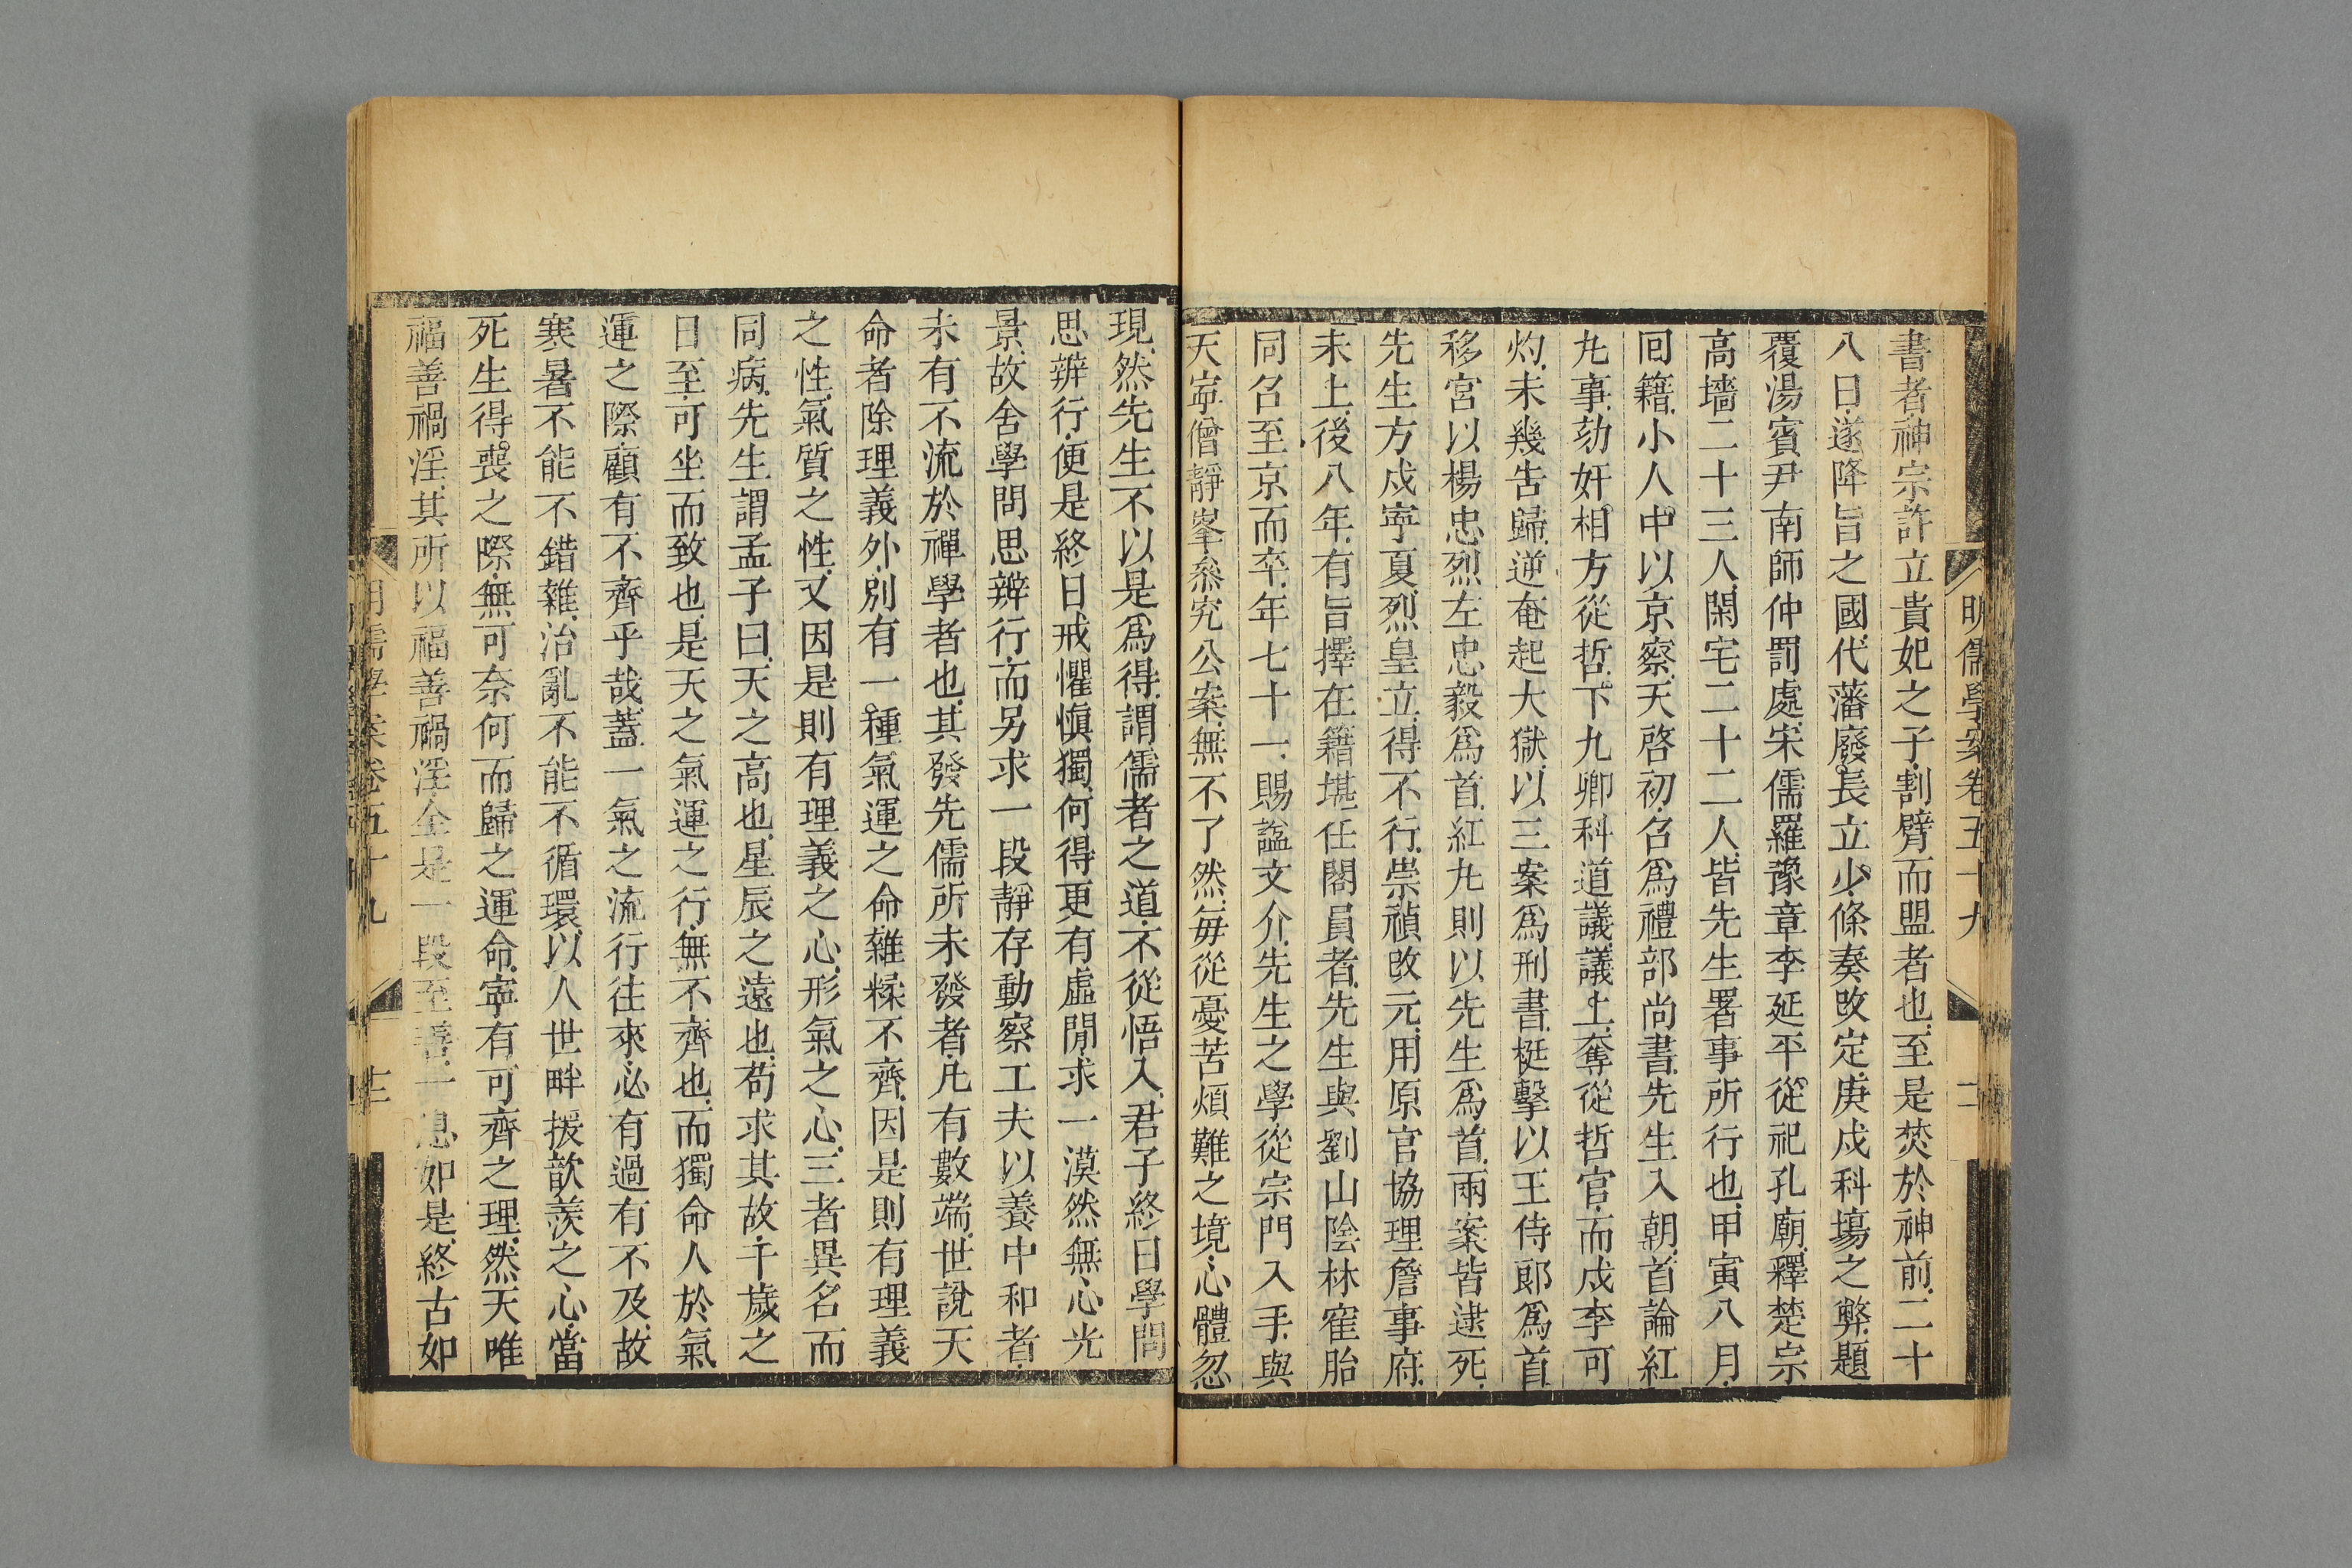 明儒學案卷五十九
書者神宗許立貴妃之子割臂而盟者也至是焚於神前二十
八日遂降旨之國代藩廢長立少條奏改定庚戍科塲之弊題
覆湯賓尹南師仲罰處宋儒羅豫章李延平從祀孔廟釋楚宗
高墻二十三人閑宅二十二人皆先生署事所行也甲寅八月
回籍小人中以京察天啓初召爲禮部尚書先生入朝首論紅
丸事劾奸相方從哲下九卿科道議議上奪從哲官而戍李可
灼未幾告歸逆奄起大獄以三案爲刑書梃擊以王侍郎爲首
移宮以楊忠烈左忠毅爲首紅丸則以先生爲首兩案皆逮死
先生方戍寕夏烈皇立得不行崇禎改元用原官協理詹事府
未上後八年有旨擇在籍堪任閣員者先生與劉山陰林寉胎
同召至京而卒年七十一賜諡文介先生之學從宗門入手與
天寕僧靜峯叅究公案無不了然每從憂苦煩難之境心體忽
現然先生不以是爲得謂儒者之道不從悟入君子終日學問
思辨行便是終日戒懼愼獨何得更有虛閒求一漠然無心光
景故舍學問思辨行而另求一段靜存動察工夫以養中和者
未有不流於禪學者也其發先儒所未發者凡有數端世說天
命者除理義外別有一種氣運之命雜糅不齊因是則有理義
之性氣質之性又因是則有理義之心形氣之心三者異名而
同病先生謂孟子曰天之高也星辰之遠也苟求其故千歲之
日至可坐而致也是天之氣運之行無不齊也而獨命人於氣
運之際顧有不齊乎哉蓋一氣之流行往來必有過有不及故
寒暑不能不錯雜治亂不能不循環以人世畔援歆羨之心當
死生得喪之際無可奈何而歸之運命寕有可齊之理然天唯
福善禍淫其所以福善禍淫全是一段至善一息如是終古如
明儒學案卷五十九